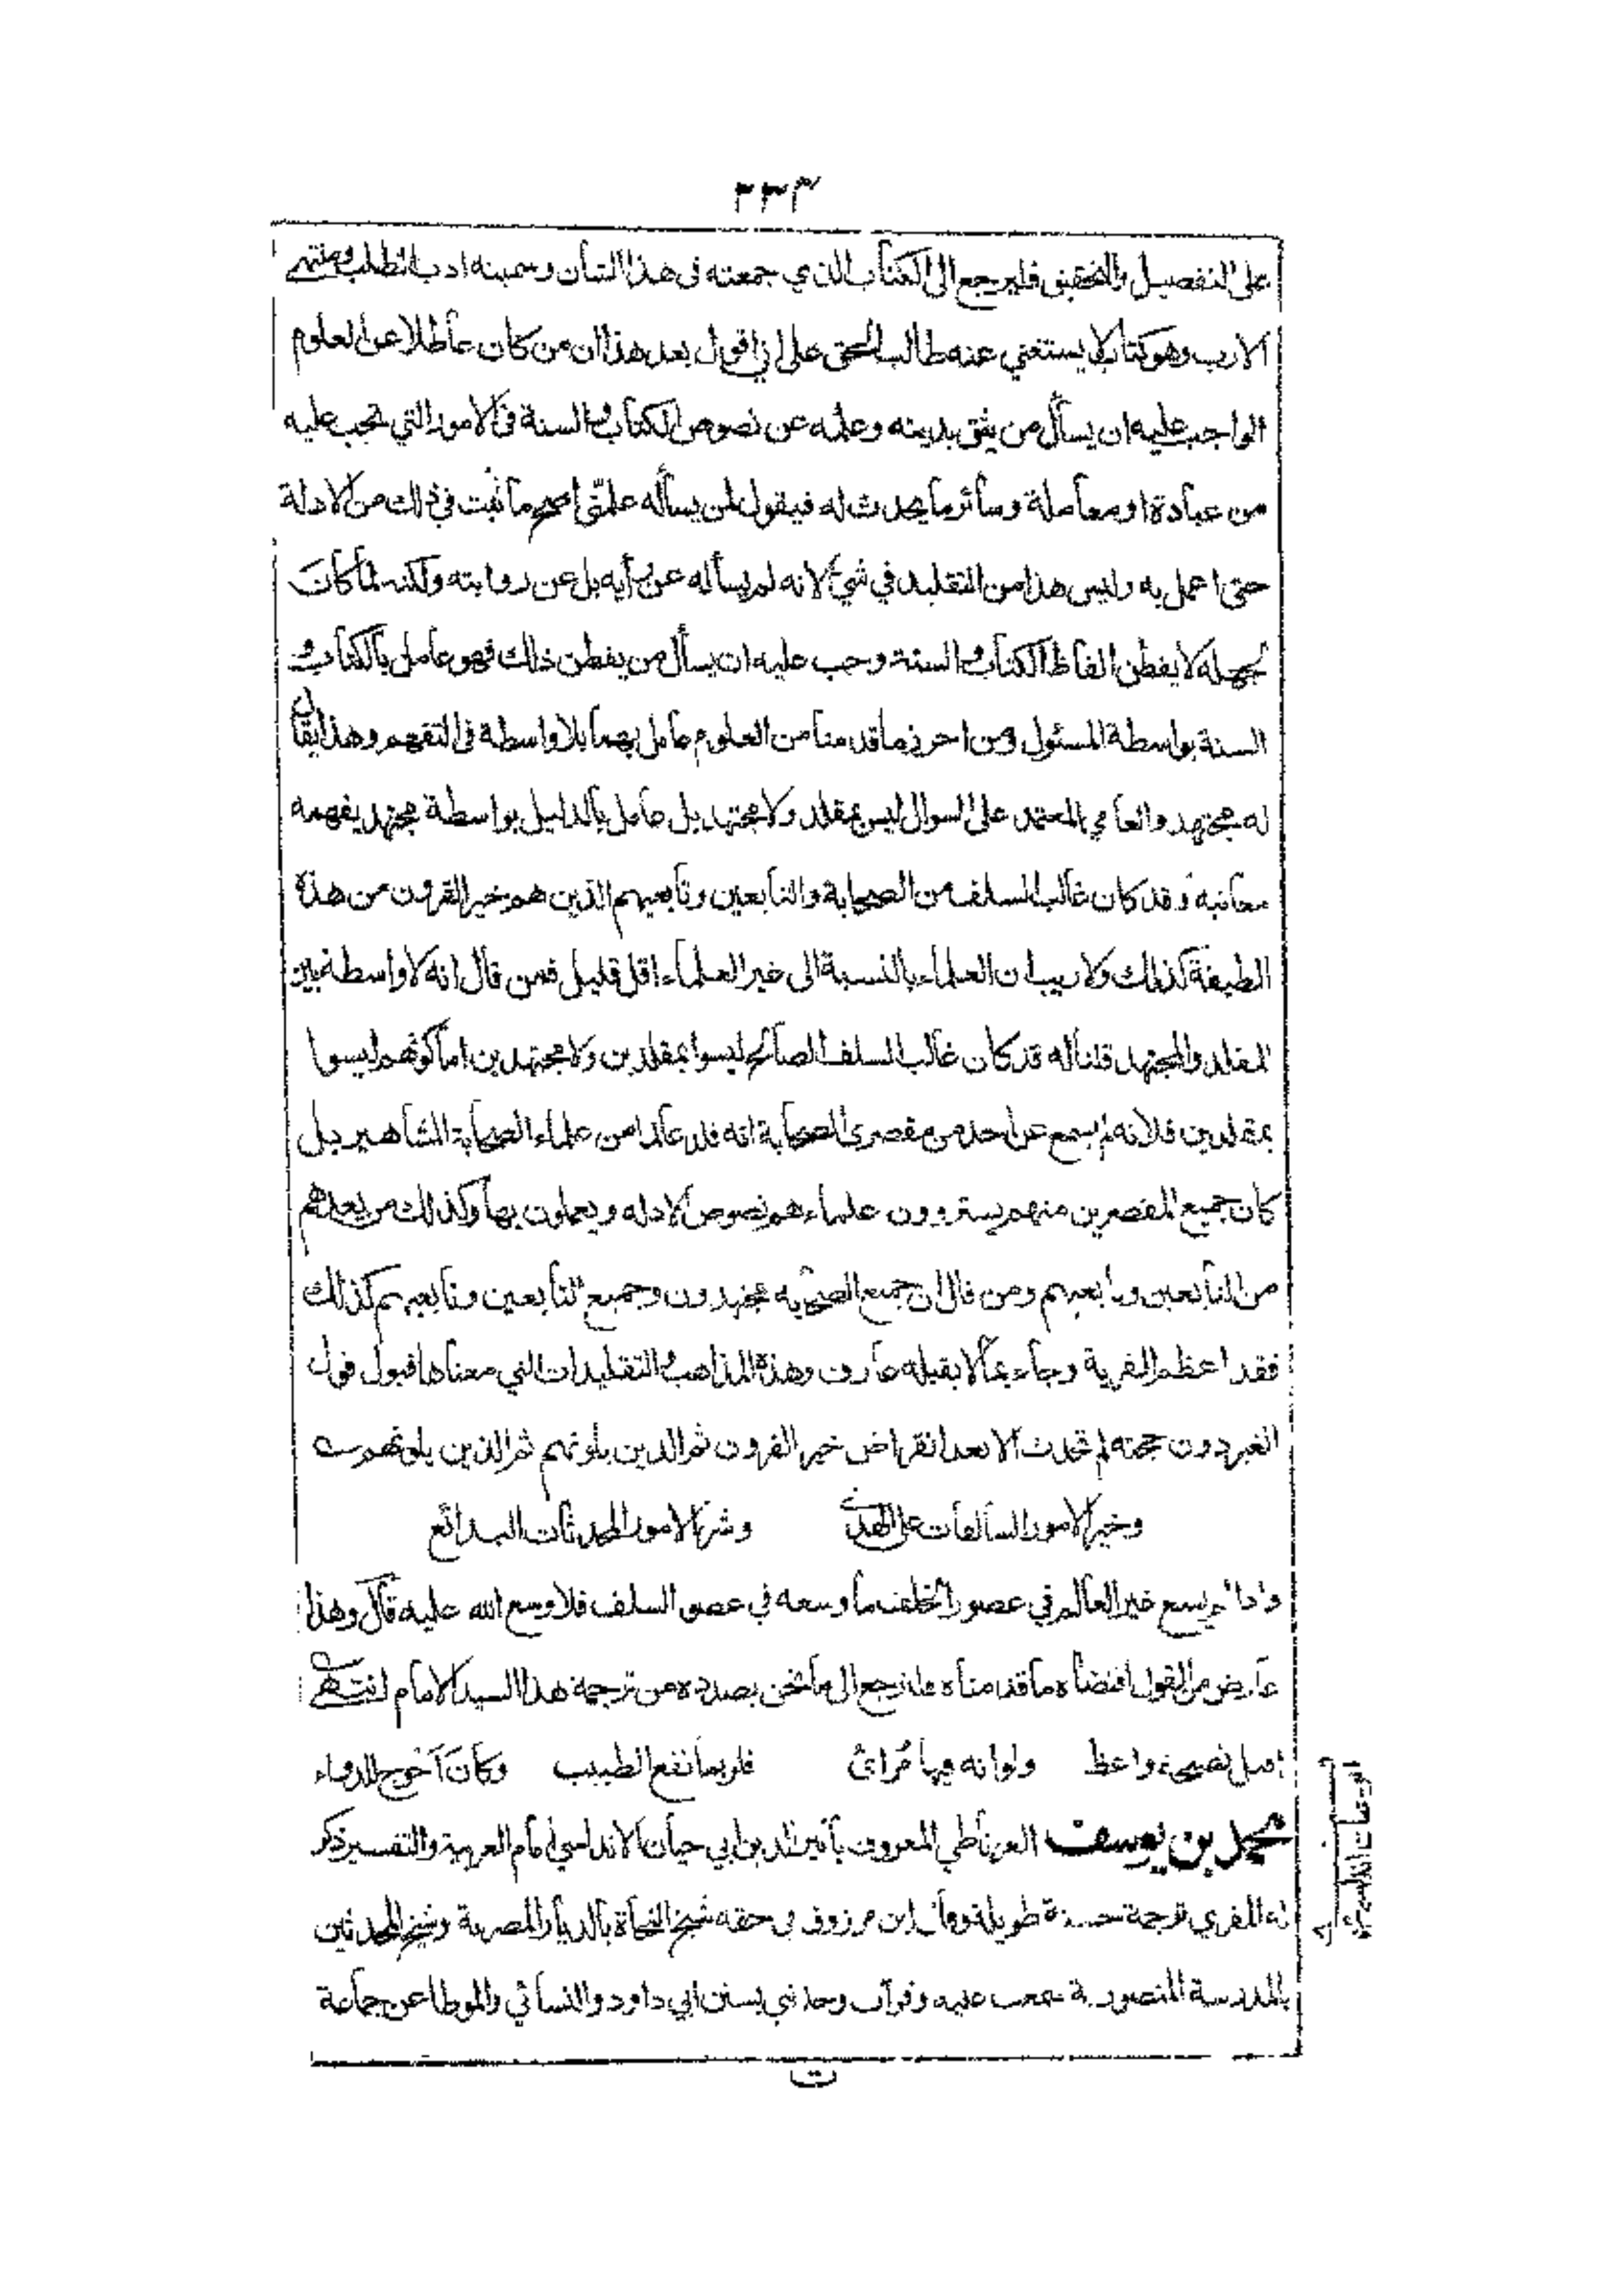 ٣٣٣
على التفصيل والتحقيق فليرجع الى الكتاب الذي جمعته فى هذا الشأن وسميته ادب الطلب ومنتهى
الارب وهو كتاب لا يستغني عنه طالب الحق على اني اقول بعد هذا ان من كان عاطلا عن العلوم
الواجب عليه ان يسأل من يثق بدينه وعلمه عن نصوص الكتاب والسنة فى الامور التي تجب عليه
من عبادة او معاملة وسائر ما يحدث له فيقول لمن يسأله علمني اصح ما ثبت في ذلك من الادلة
حتى اعمل به وليس هذا من التقليد في شيء لانه لم يسأله عن رأيه بل عن روايته ولكنه لما كان
لجهله لا يفطن الفاظ الكتاب والسنة وجب عليه ان يسأل من يفطن ذلك فهو عامل بالكتاب و
السنة بواسطة المسئول ومن احرز ما قدمنا من العلوم عامل بهما بلا واسطة فى التفهم وهذا يقال
له مجتهد والعامي المعتمد على السوال ليس بمقلد ولا مجتهد بل عامل بالدليل بواسطة مجتهد يفهمه
معانيه وقد كان غالب السلف من الصحابة والتابعين وتابعيهم الذين هم خير القرون من هذه
الطبقة كذلك ولا ريب ان العلماء بالنسبة الى غير العلماء اقل قليل فمن قال انه لا واسطة بين
المقلد والمجتهد قلنا له قد كان غالب السلف الصالح ليسوا بمقلدين ولا مجتهدين اما كونهم ليسوا
بمقلدين فلانه لم يسمع عن احد من مقصرى الصحابة انه قلد عالما من علماء الصحابة المشاهير بل
كان جميع المقصرين منهم يستروون علماءهم نصوص الادله ويعملون بها وكذلك من بعدهم
من التابعين وتابعيهم ومن قال ان جميع الصحابه مجتهدون وجميع التابعين وتابعيهم كذلك
فقد اعظم الفرية وجاء بما لا يقبله عارف وهذه المذاهب والتقليدات التي معناها قبول قول
الغير دون حجته لم تحدث الا بعد انقراض خير القرون ثم الذين يلونهم ثم الذين يلونهم
وخير الامور السالفات على الهدى وشر الامور المحدثات البدائع
واذا لم يسع غير العالم في عصور الخلف ما وسعه في عصر السلف فلا وسع الله عليه قال وهذا
عارض من القول اقتضاه ما قدمناه فلنرجع الى ما نحن بصدده من ترجمة هذا السيد الامام انتهى
اقبل نصيحة واعظ ولو انه فيها مُرائى فلربما نفع الطبيب وكان احوج للدواء
محمد بن يوسف الغرناطي المعروف بأثير الدين ابي حيان الاندلسي امام العربية والتفسير ذكر
له المقري ترجمة حسنة طويلة وقال ابن مرزوق فى حقه شيخ النحاة بالديار المصرية وشيخ المحدثين
بالمدرسة المنصورية سمعت عليه وقرأت وحدثني بسنن ابي داود والنسائي والموطا عن جماعة
ابو حيان اندلسى
ت